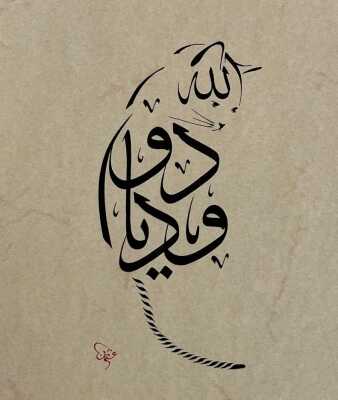 الله
يا ودود